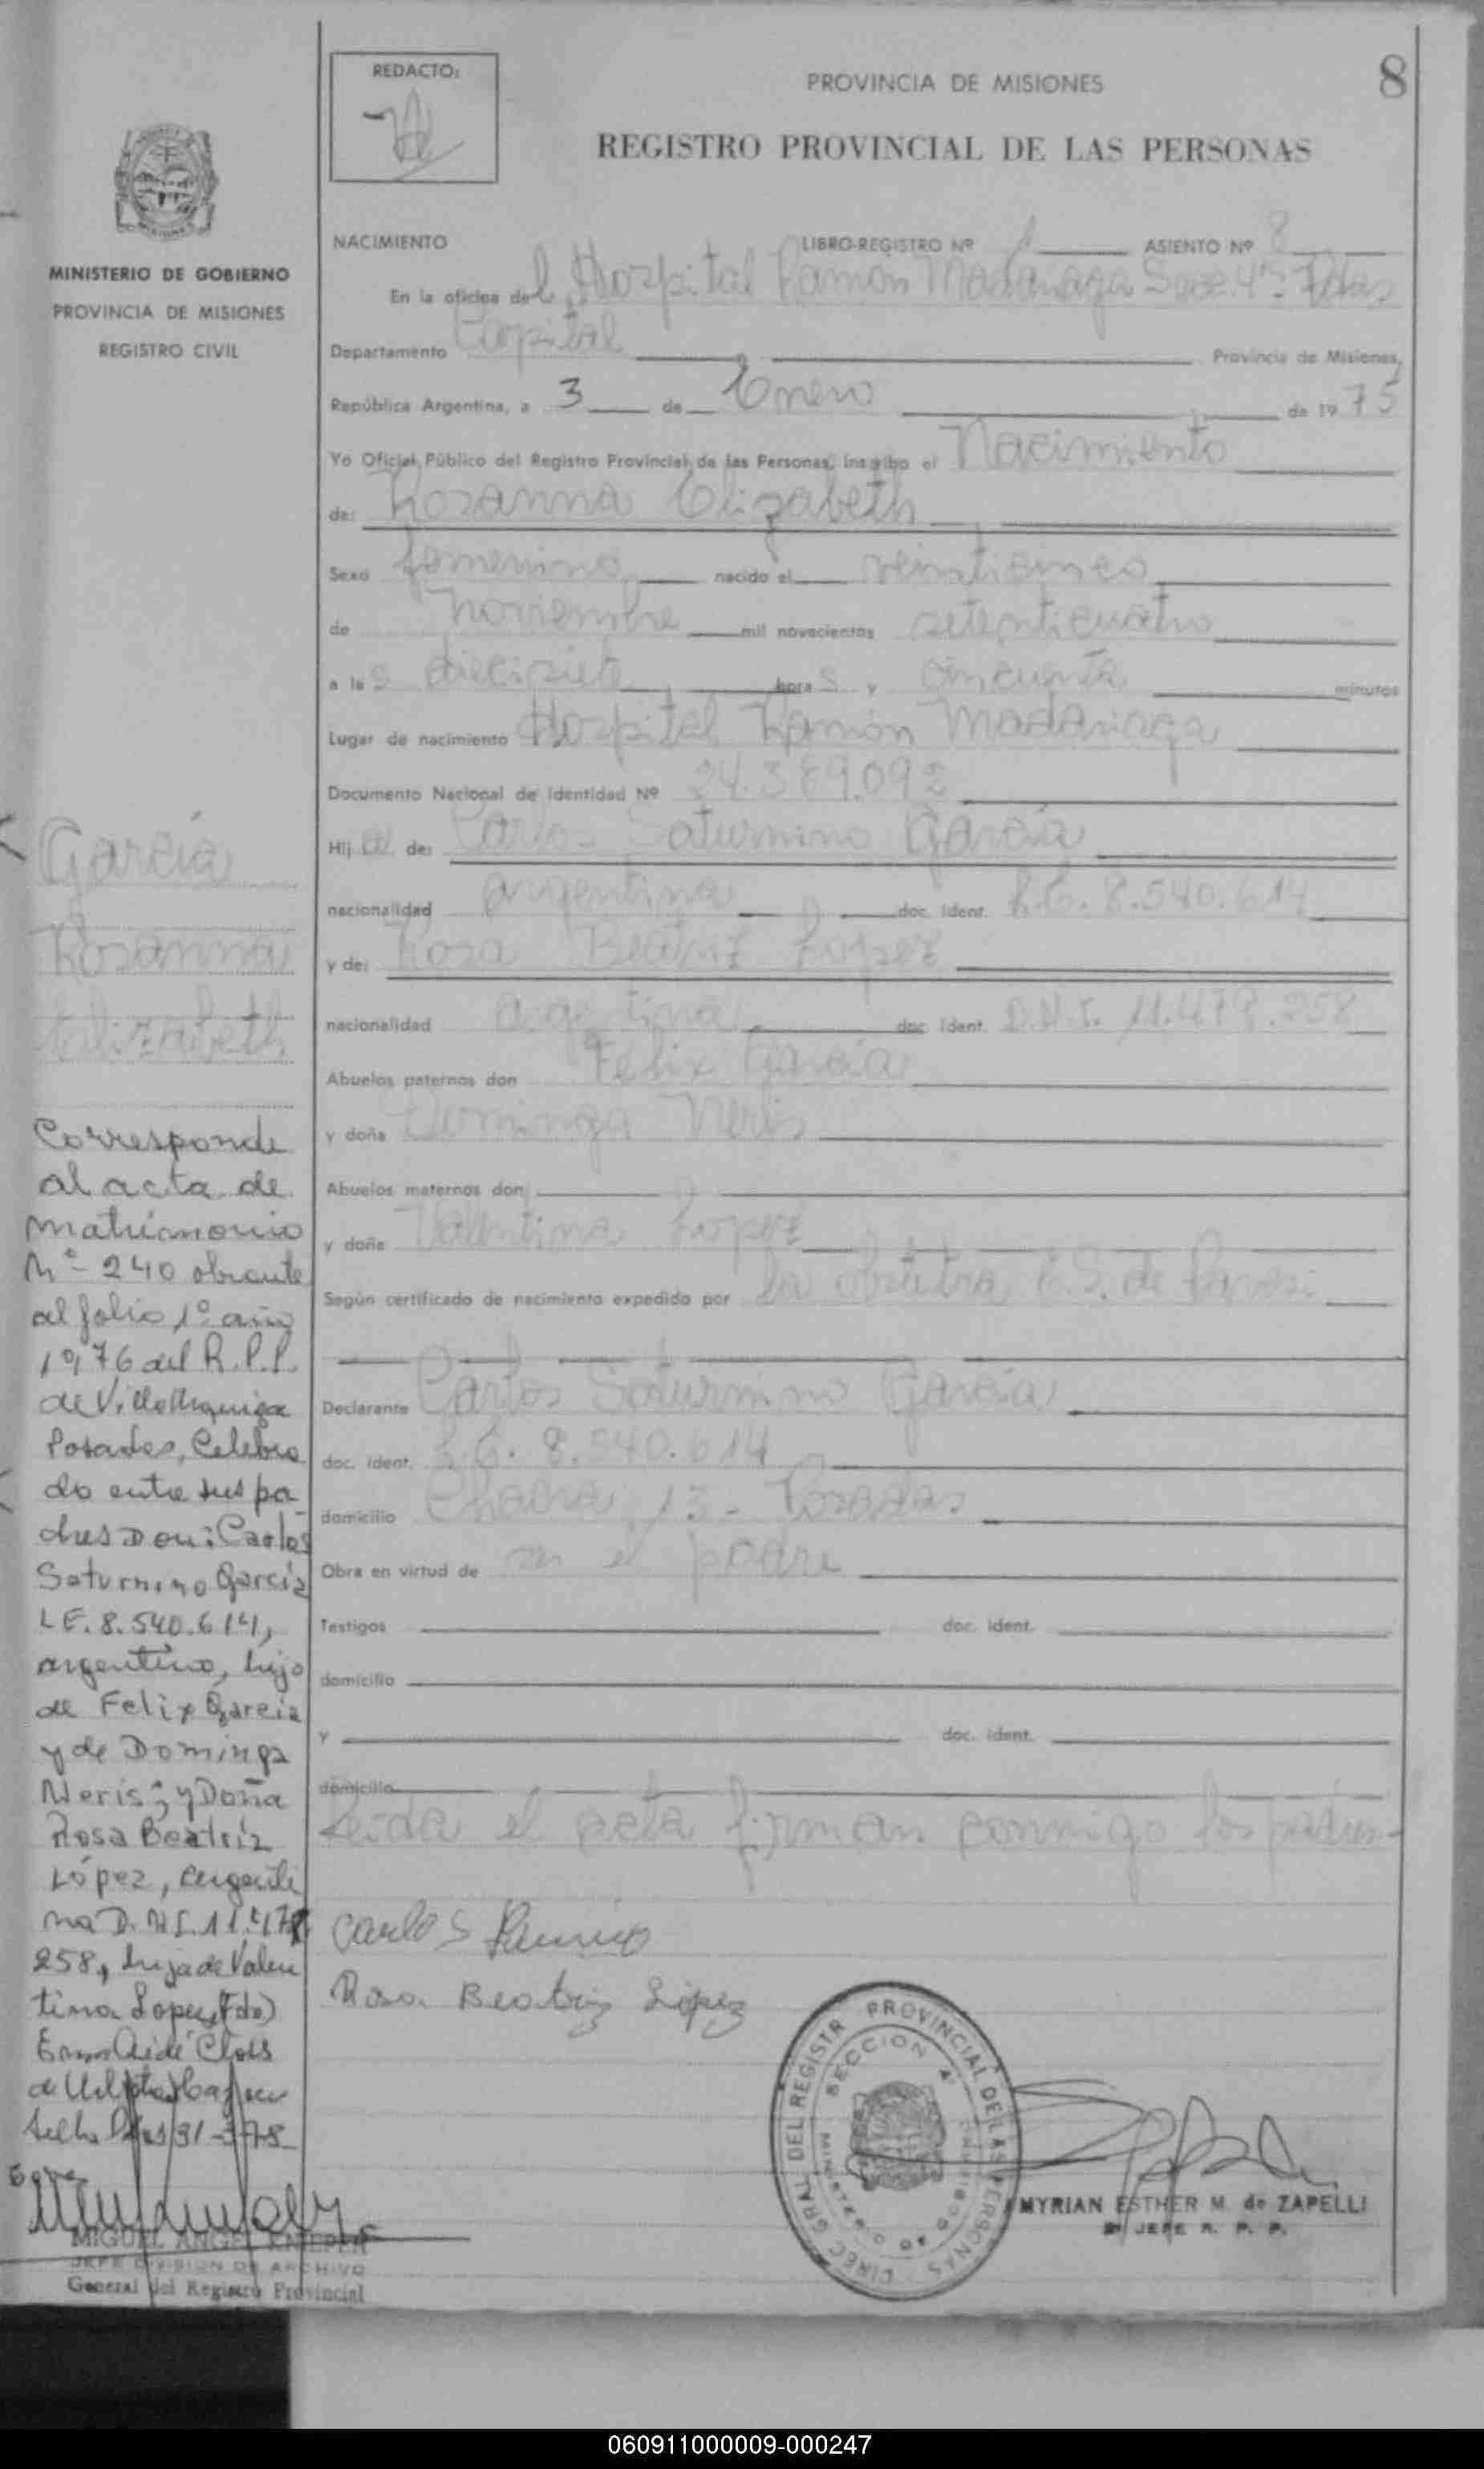 8
REDACTO:
PROVINCIA DE MISIONES
REGISTRO PROVINCIAL DE LAS PERSONAS
MINISTERIO DE GOBIERNO
PROVINCIA DE MISIONES
REGISTRO CIVIL
NACIMIENTO LIBRO-REGISTRO Nº 1 ASIENTO Nº 8
En la oficina del Hospital Ramón Madariaga Secc. 4ª Pdas
Departamento Capital Provincia de Misiones,
República Argentina, a 3 de Enero de 1975
Yo Oficial Público del Registro Provincial de las Personas, inscribo el Nacimiento
de: Rosanna Elizabeth
Sexo femenino nacido el veinticinco
de noviembre mil novecientos setenticuatro
a las diecisiete horas y cincuenta minutos
Lugar de nacimiento Hospital Ramón Madariaga
Documento Nacional de Identidad Nº 24.389.092
Hija de: Carlos Saturnino García
nacionalidad argentina doc. ident. L.E. 8.540.614
y de: Rosa Beatriz Lopez
nacionalidad argentina doc. ident. D.N.I. 11.478.258
Abuelos paternos don Felix García
y doña Dominga Neris
Abuelos maternos don
y doña Valentina Lopez
Según certificado de nacimiento expedido por la obstetra E.S. de
Declarante Carlos Saturnino García
doc. ident. L.E. 8.540.614
domicilio Chacra 13 - Posadas
Obra en virtud de ser el padre
Testigos doc. ident.
domicilio
y doc. ident.
domicilio
Leida el acta firman conmigo los padres-
Carlos
Rosa Beatriz López
García
Rosanna
Elizabeth
Corresponde
al acta de
matrimonio
Nº- 240 obrante
al folio 1º año
1976 del R.P.P.
de Villa Urquiza
Posadas, Celebra
do entre sus pa
dres Don: Carlos
Saturnino García
LE. 8.540.614,
argentino, hijo
de Felix García
y de Dominga
Neris; y Doña
Rosa Beatriz
López, argenti
na D.NI. 11.478
258, hija de Valen
tina Lopez (fdo)
de
31-
MIGUEL ANGEL
JEFE DIVISION DE ARCHIVO
General del Registro Provincial
DIREC. GRAL DEL REGISTR PROVINCIAL DE LAS PERSONAS
SECCION 4ª
MINISTERIO DE GOBIERNO
MYRIAN ESTHER M. de ZAPELLI
JEFE R. P. P.
060911000009-000247